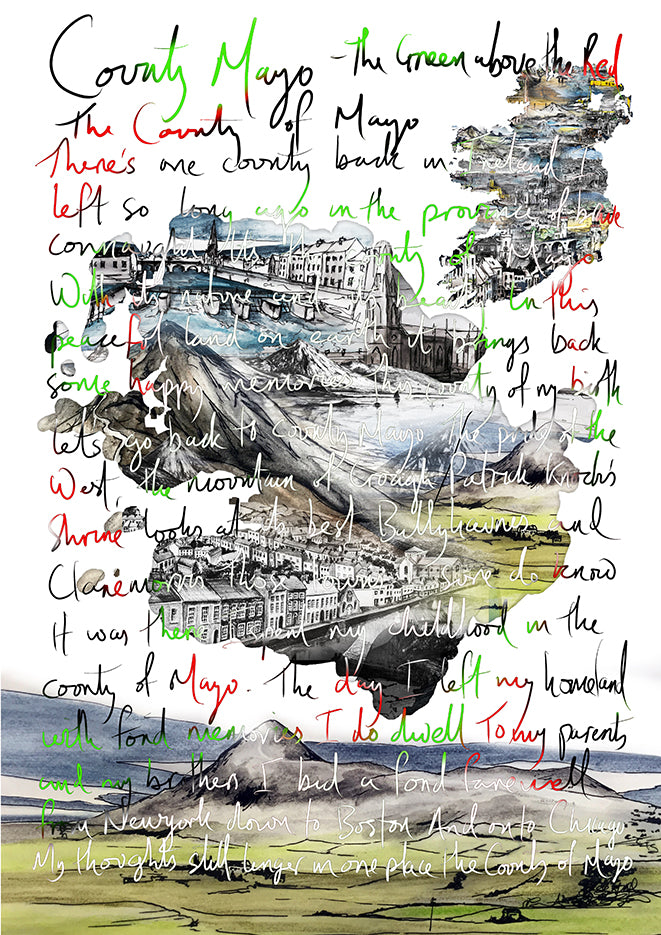 County Mayo - The Green above the Red
The County of Mayo
There's one county back in Ireland I
left so long ago in the province of
connaught Its the county of Mayo
With its nature and its beauty in this
peaceful land on earth it brings back
some happy memories this county of my birth
Lets go back to County Mayo the pride of the
West, the mountain of Croagh Patrick Knock's
Shrine looks at its best Ballyhaunes and
Claremorris those towns I sure do know
It was there I spent my childhood in the
county of Mayo. The day I left my homeland
with fond memories I do dwell To my parents
and my brothers I bid a fond farewell
From Newyork down to Boston And onto Chicago
My thoughts still linger in one place the County of Mayo